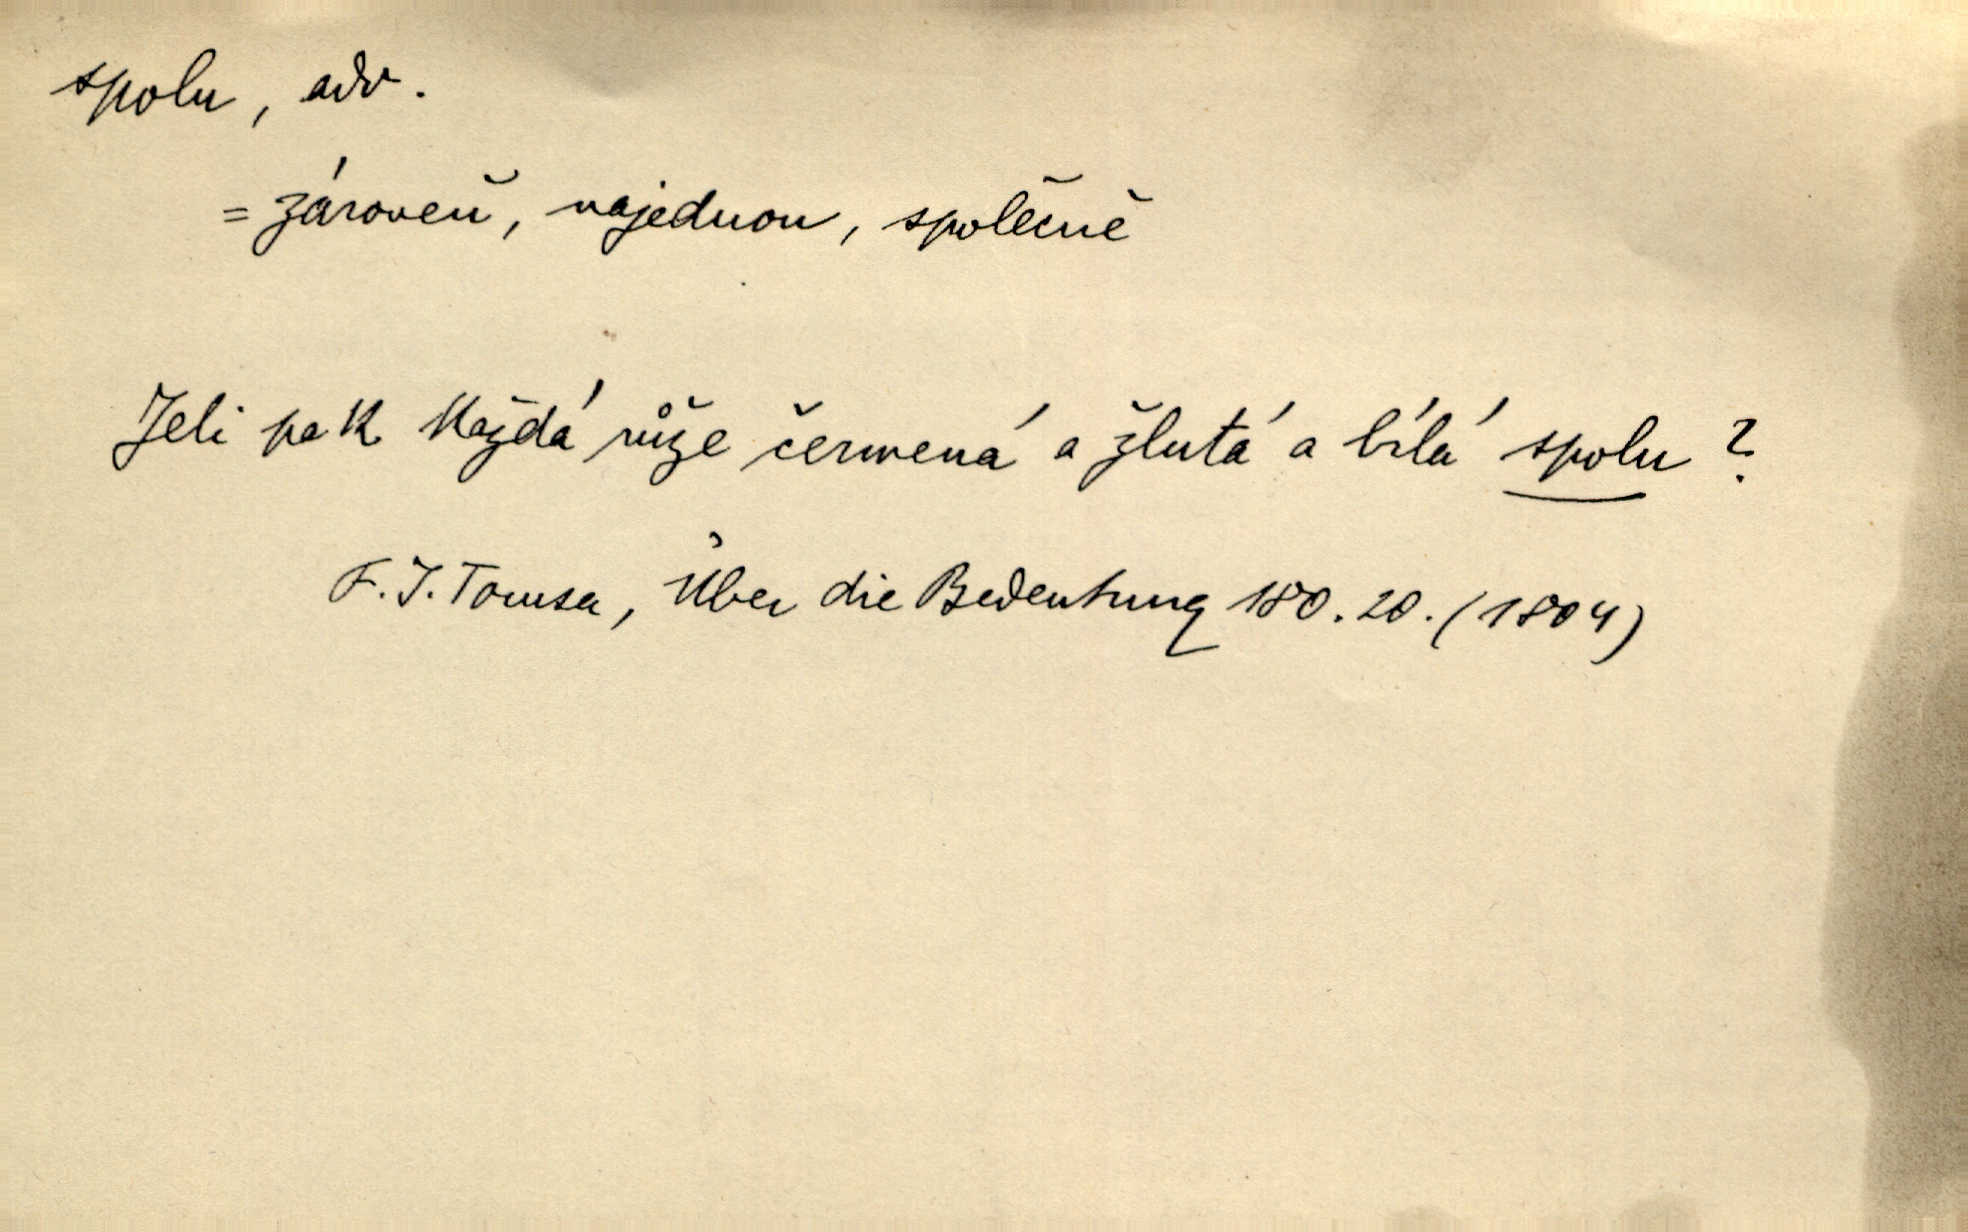 spolu, adv.
= zároveň, najednou, společně
Jeli pak každá růže červená a žlutá a bílá spolu?
F. J. Tomsa, Über die Bedeutung 180. 20. (1804)